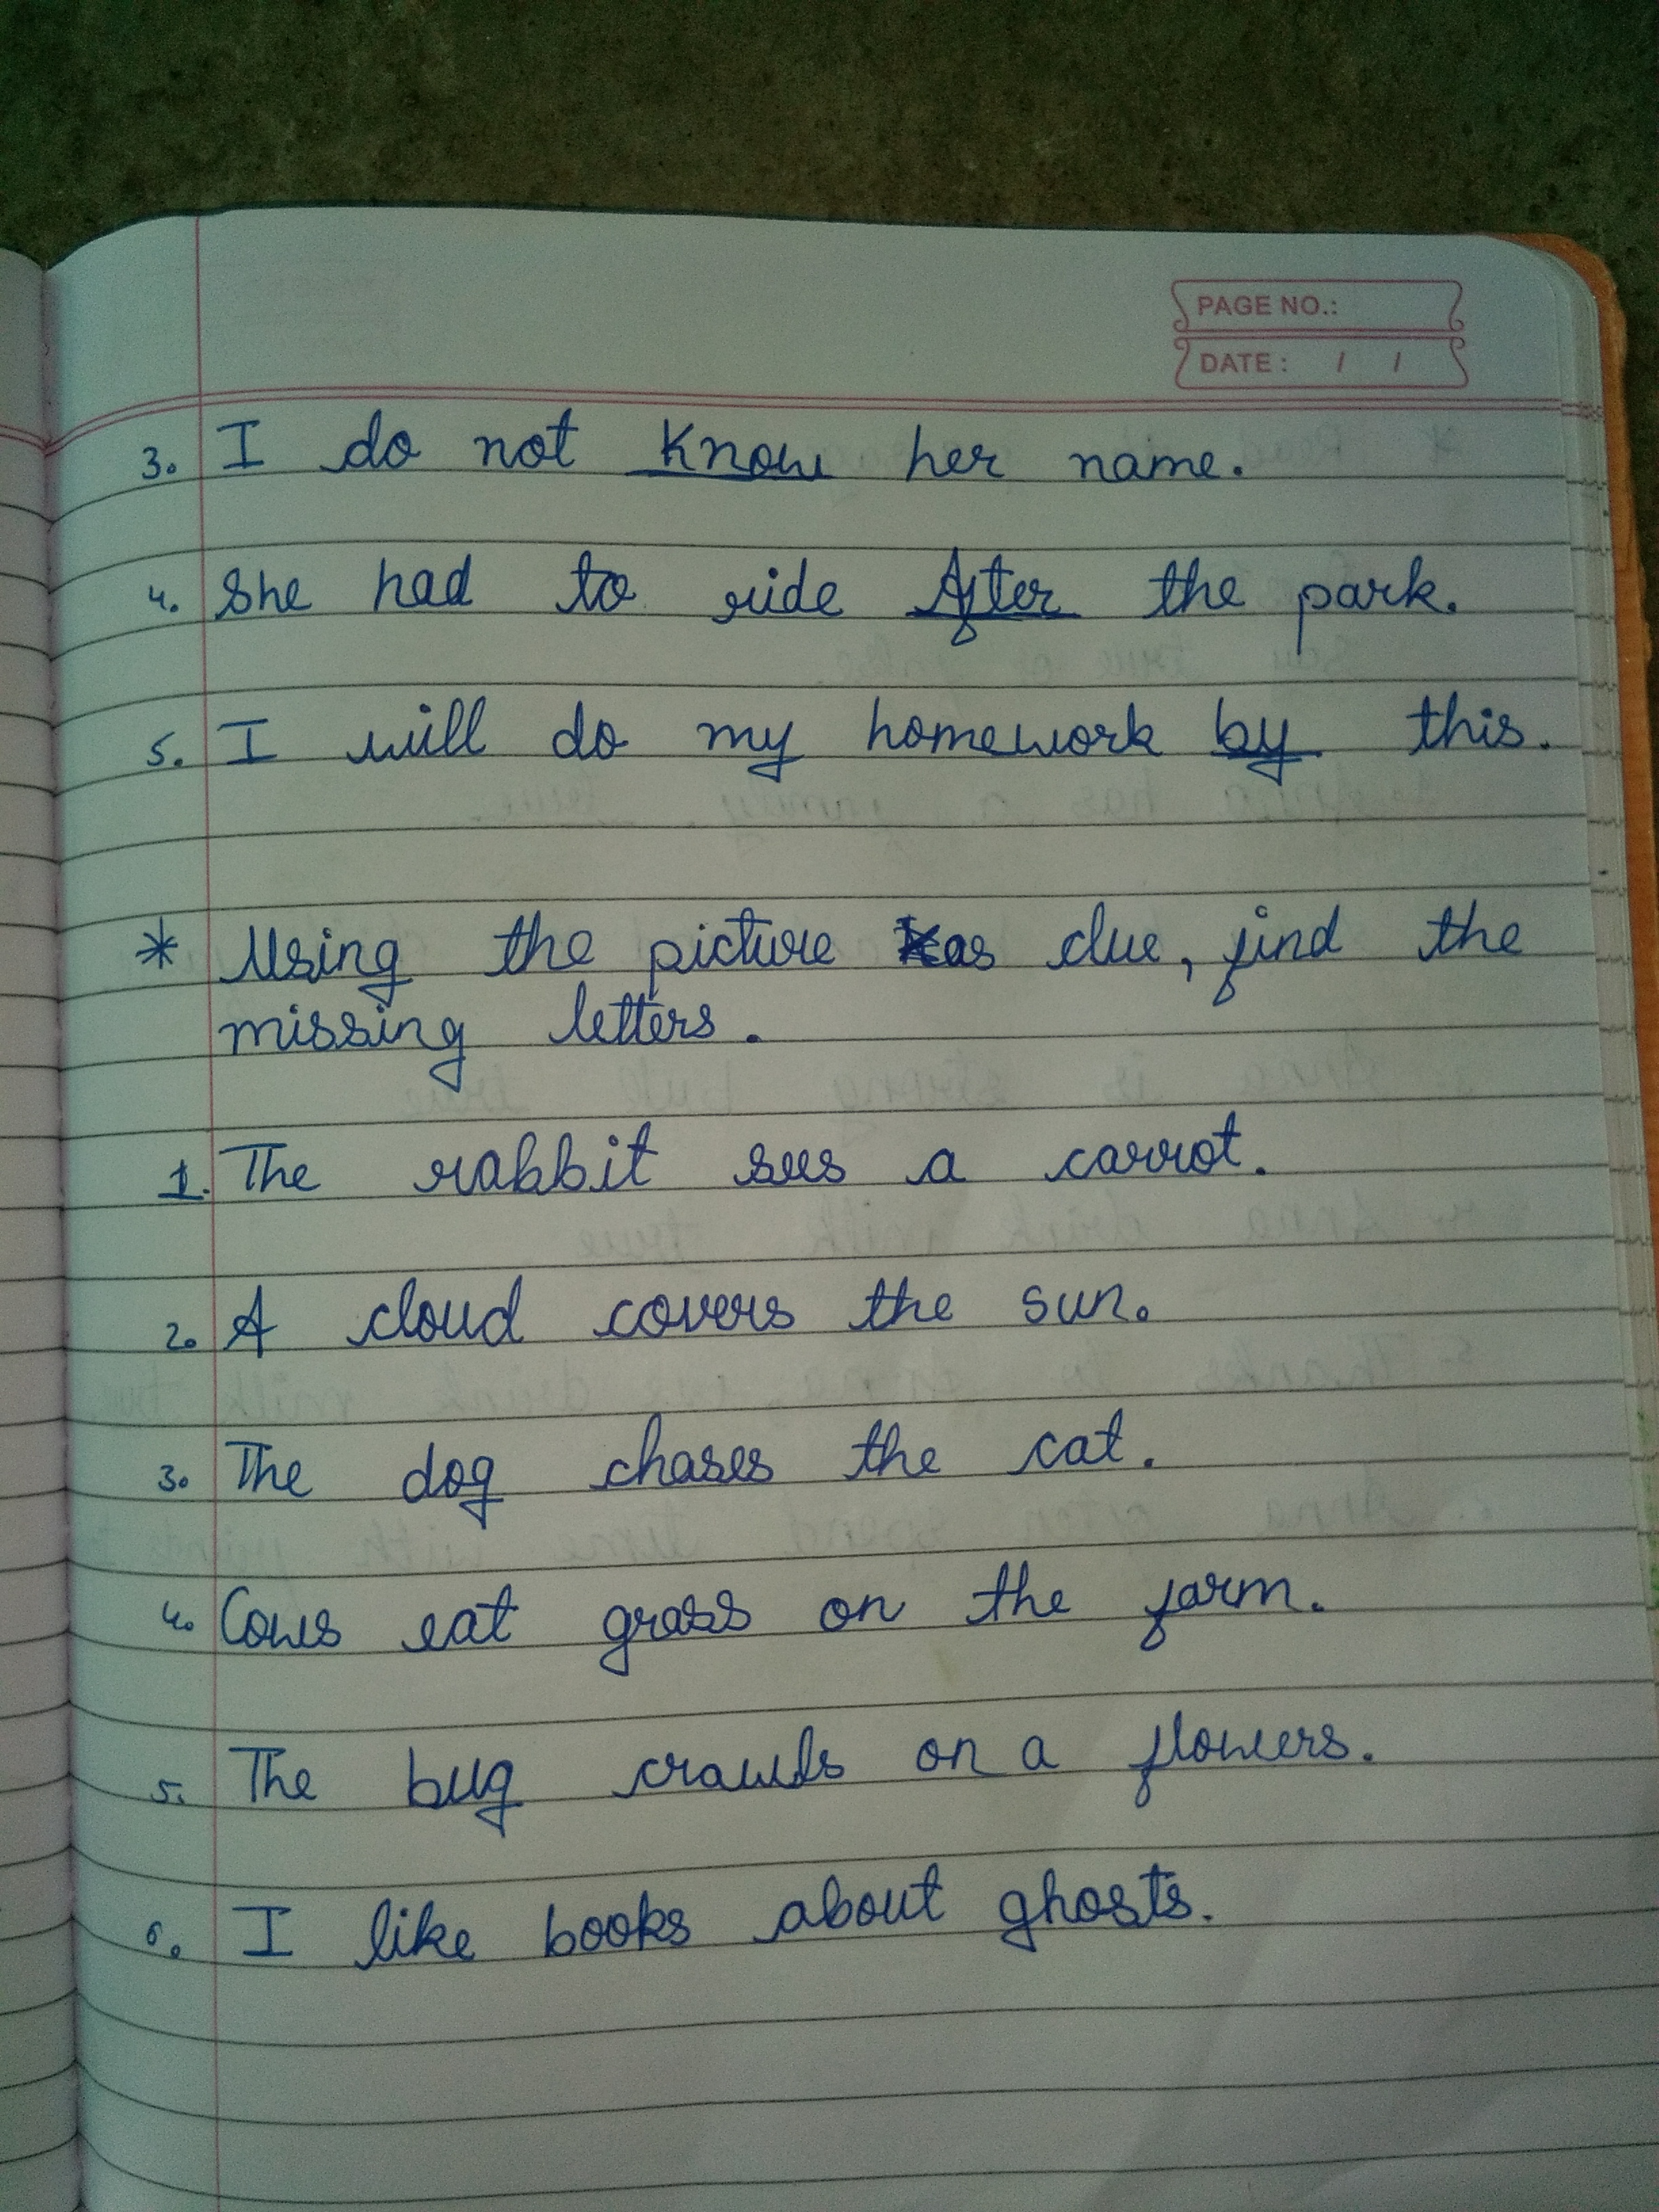 PAGE NO.:
DATE : / /
3. I do not Know her name.
4. She had to ride After the park.
5. I will do my homework by this.
* Using the picture as clue, find the
missing letters.
1. The rabbit sees a carrot.
2. A cloud covers the sun.
3. The dog chases the cat.
4. Cows eat grass on the farm.
5. The bug crawls on a flowers.
6. I like books about ghosts.